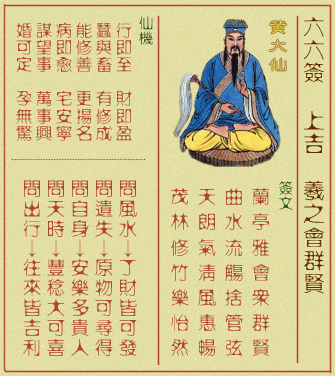 六六簽 上吉 羲之會群賢
黄大仙
簽文
蘭亭雅會衆群賢
曲水流觴捨管弦
天朗氣清風惠暢
茂林修竹樂怡然
仙機
行即至 財即盈
蠶與畜 有修成
能修善 更揚名
病即愈 宅安寧
謀望事 萬事興
婚可定 孕無驚
問風水→了財皆可發
問遺失→原物可尋得
問自身→安樂多貴人
問天時→豐稔大可喜
問出行→往來皆吉利